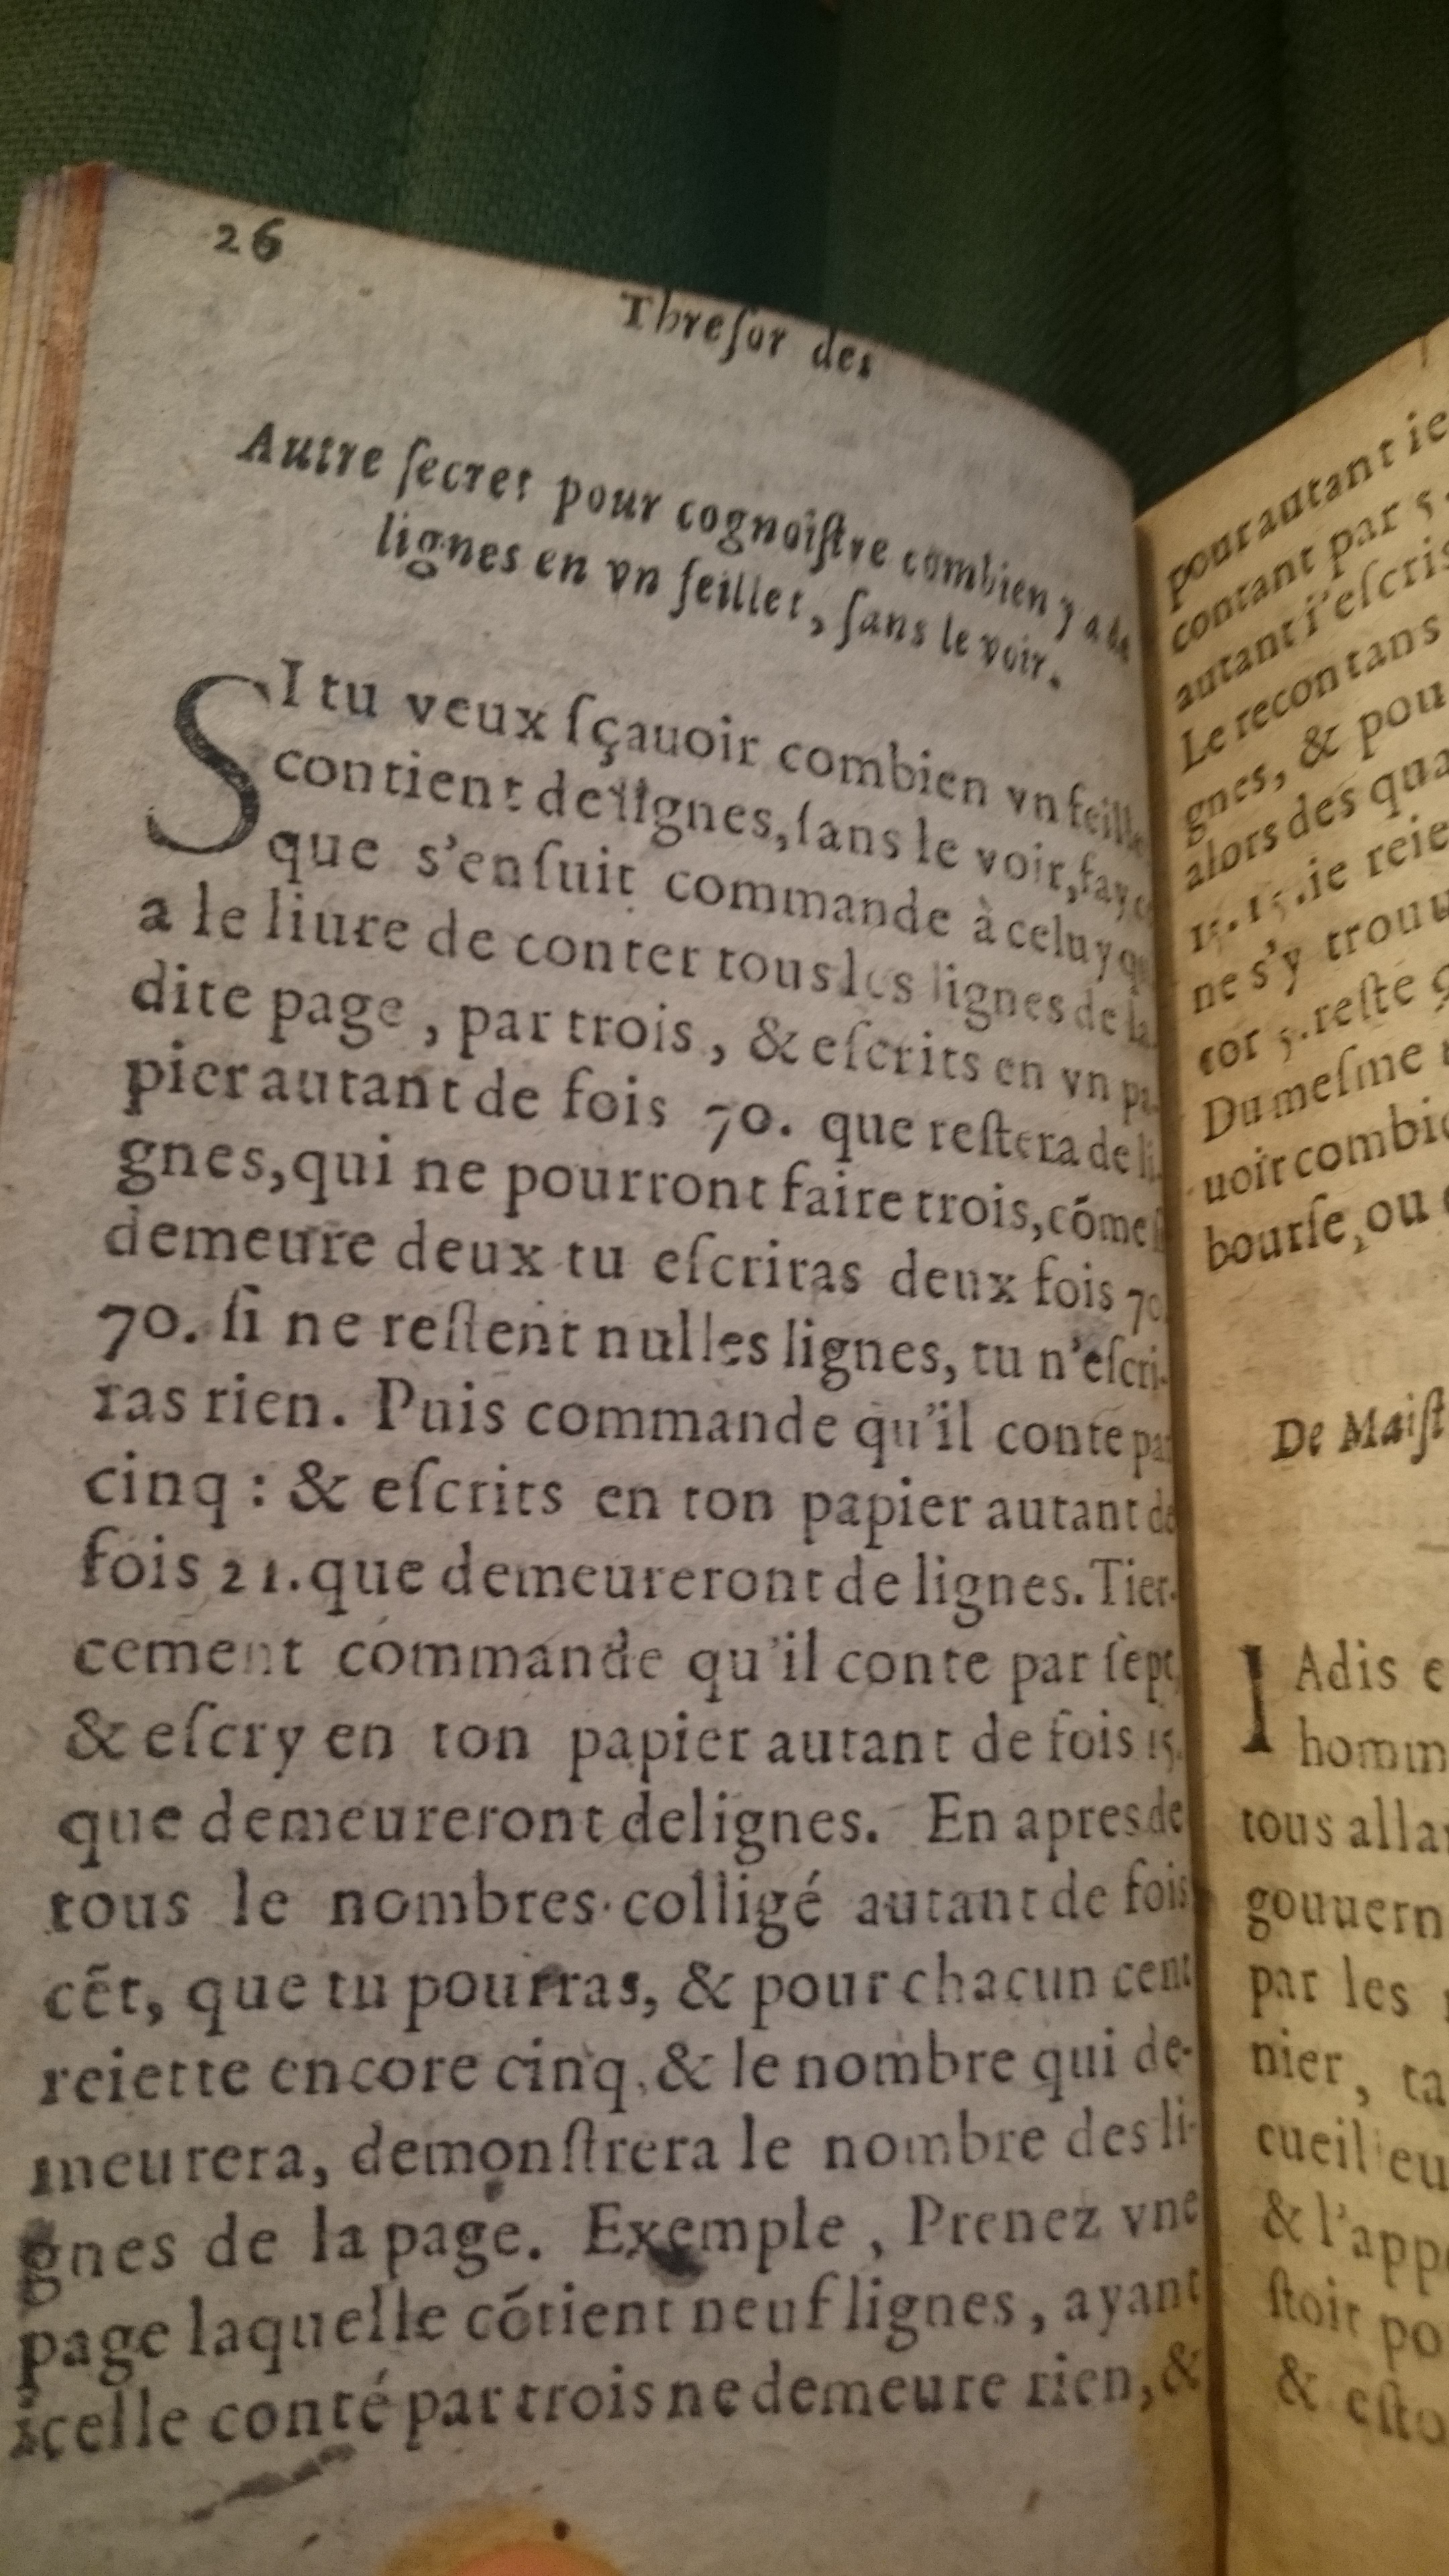 26
Threſor des
Autre ſecret pour cognoiſtre combien y a de
lignes en vn feillet, ſans le voir.
SI tu veux ſçauoir combien vn feille
contient de lignes, ſans le voir, fay ce
que s'enſuit commande à celuy qu
a le liure de conter tous les lignes de la
dite page, par trois, & eſcrits en vn pa-
pier autant de fois 70. que reſtera de li-
gnes, qui ne pourront faire trois, cōme
demeure deux tu eſcriras deux fois 70
70. ſi ne reſtent nulles lignes, tu n'eſcri-
ras rien. Puis commande qu'il conte par
cinq : & eſcrits en ton papier autant de
fois 21. que demeureront de lignes. Tier-
cement commande qu'il conte par ſept,
& eſcry en ton papier autant de fois 15.
que demeureront delignes. En apres de
tous le nombres colligé autant de fois
cēt, que tu pourras, & pour chacun cent
reiette encore cinq, & le nombre qui de-
meurera, demonſtrera le nombre des li-
gnes de la page. Exemple, Prenez vne
page laquelle cōtient neuf lignes, ayant
icelle conté par trois ne demeure rien, &
pour autant ie
contant par 5.
autant i'eſcris
Le recontans
gnes, & pou
alors des qua
15. 15. ie reie
ne s'y trouu
cor 5. reſte
Du meſme
uoir combie
bourſe, ou
De Maiſt
IAdis e
homm
tous alla
gouuern
par les
nier, ta
cueil eu
& l'app
ſtoit po
& eſto